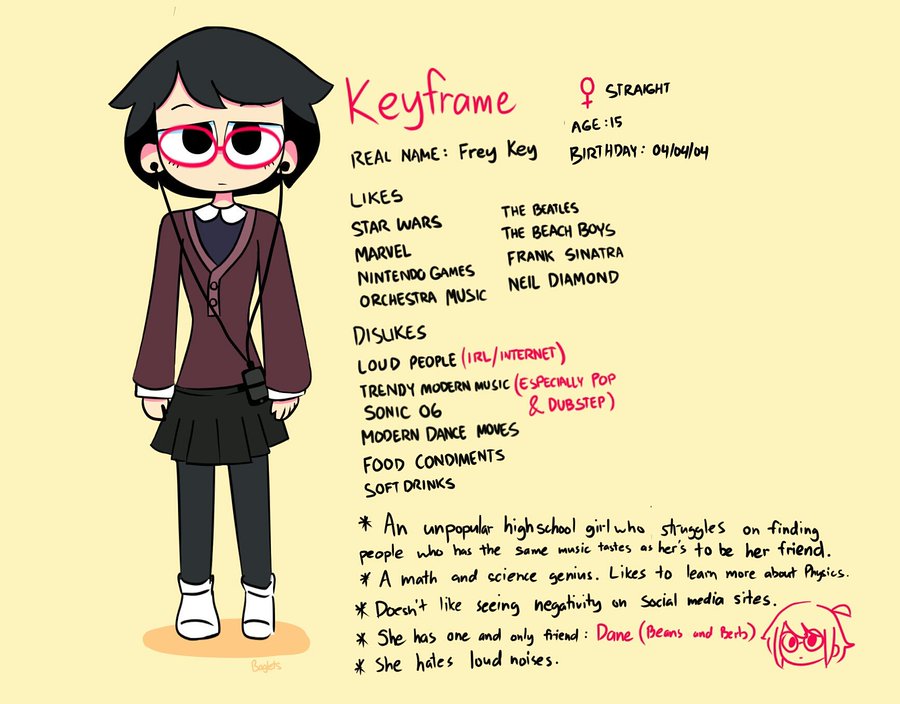 Keyframe
♀ STRAIGHT
AGE: 15
REAL NAME: Frey Key
BIRTHDAY: 04/04/04
LIKES
STAR WARS
MARVEL
NINTENDO GAMES
ORCHESTRA MUSIC
THE BEATLES
THE BEACH BOYS
FRANK SINATRA
NEIL DIAMOND
DISLIKES
LOUD PEOPLE (IRL/INTERNET)
TRENDY MODERN MUSIC (ESPECIALLY POP
& DUBSTEP)
SONIC 06
MODERN DANCE MOVES
FOOD CONDIMENTS
SOFT DRINKS
* An unpopular highschool girl who struggles on finding
people who has the same music tastes as her's to be her friend.
* A math and science genius. Likes to learn more about Physics.
* Doesn't like seeing negativity on social media sites.
* She has one and only friend: Dane (Beans and Berb)
* She hates loud noises.
Baglets